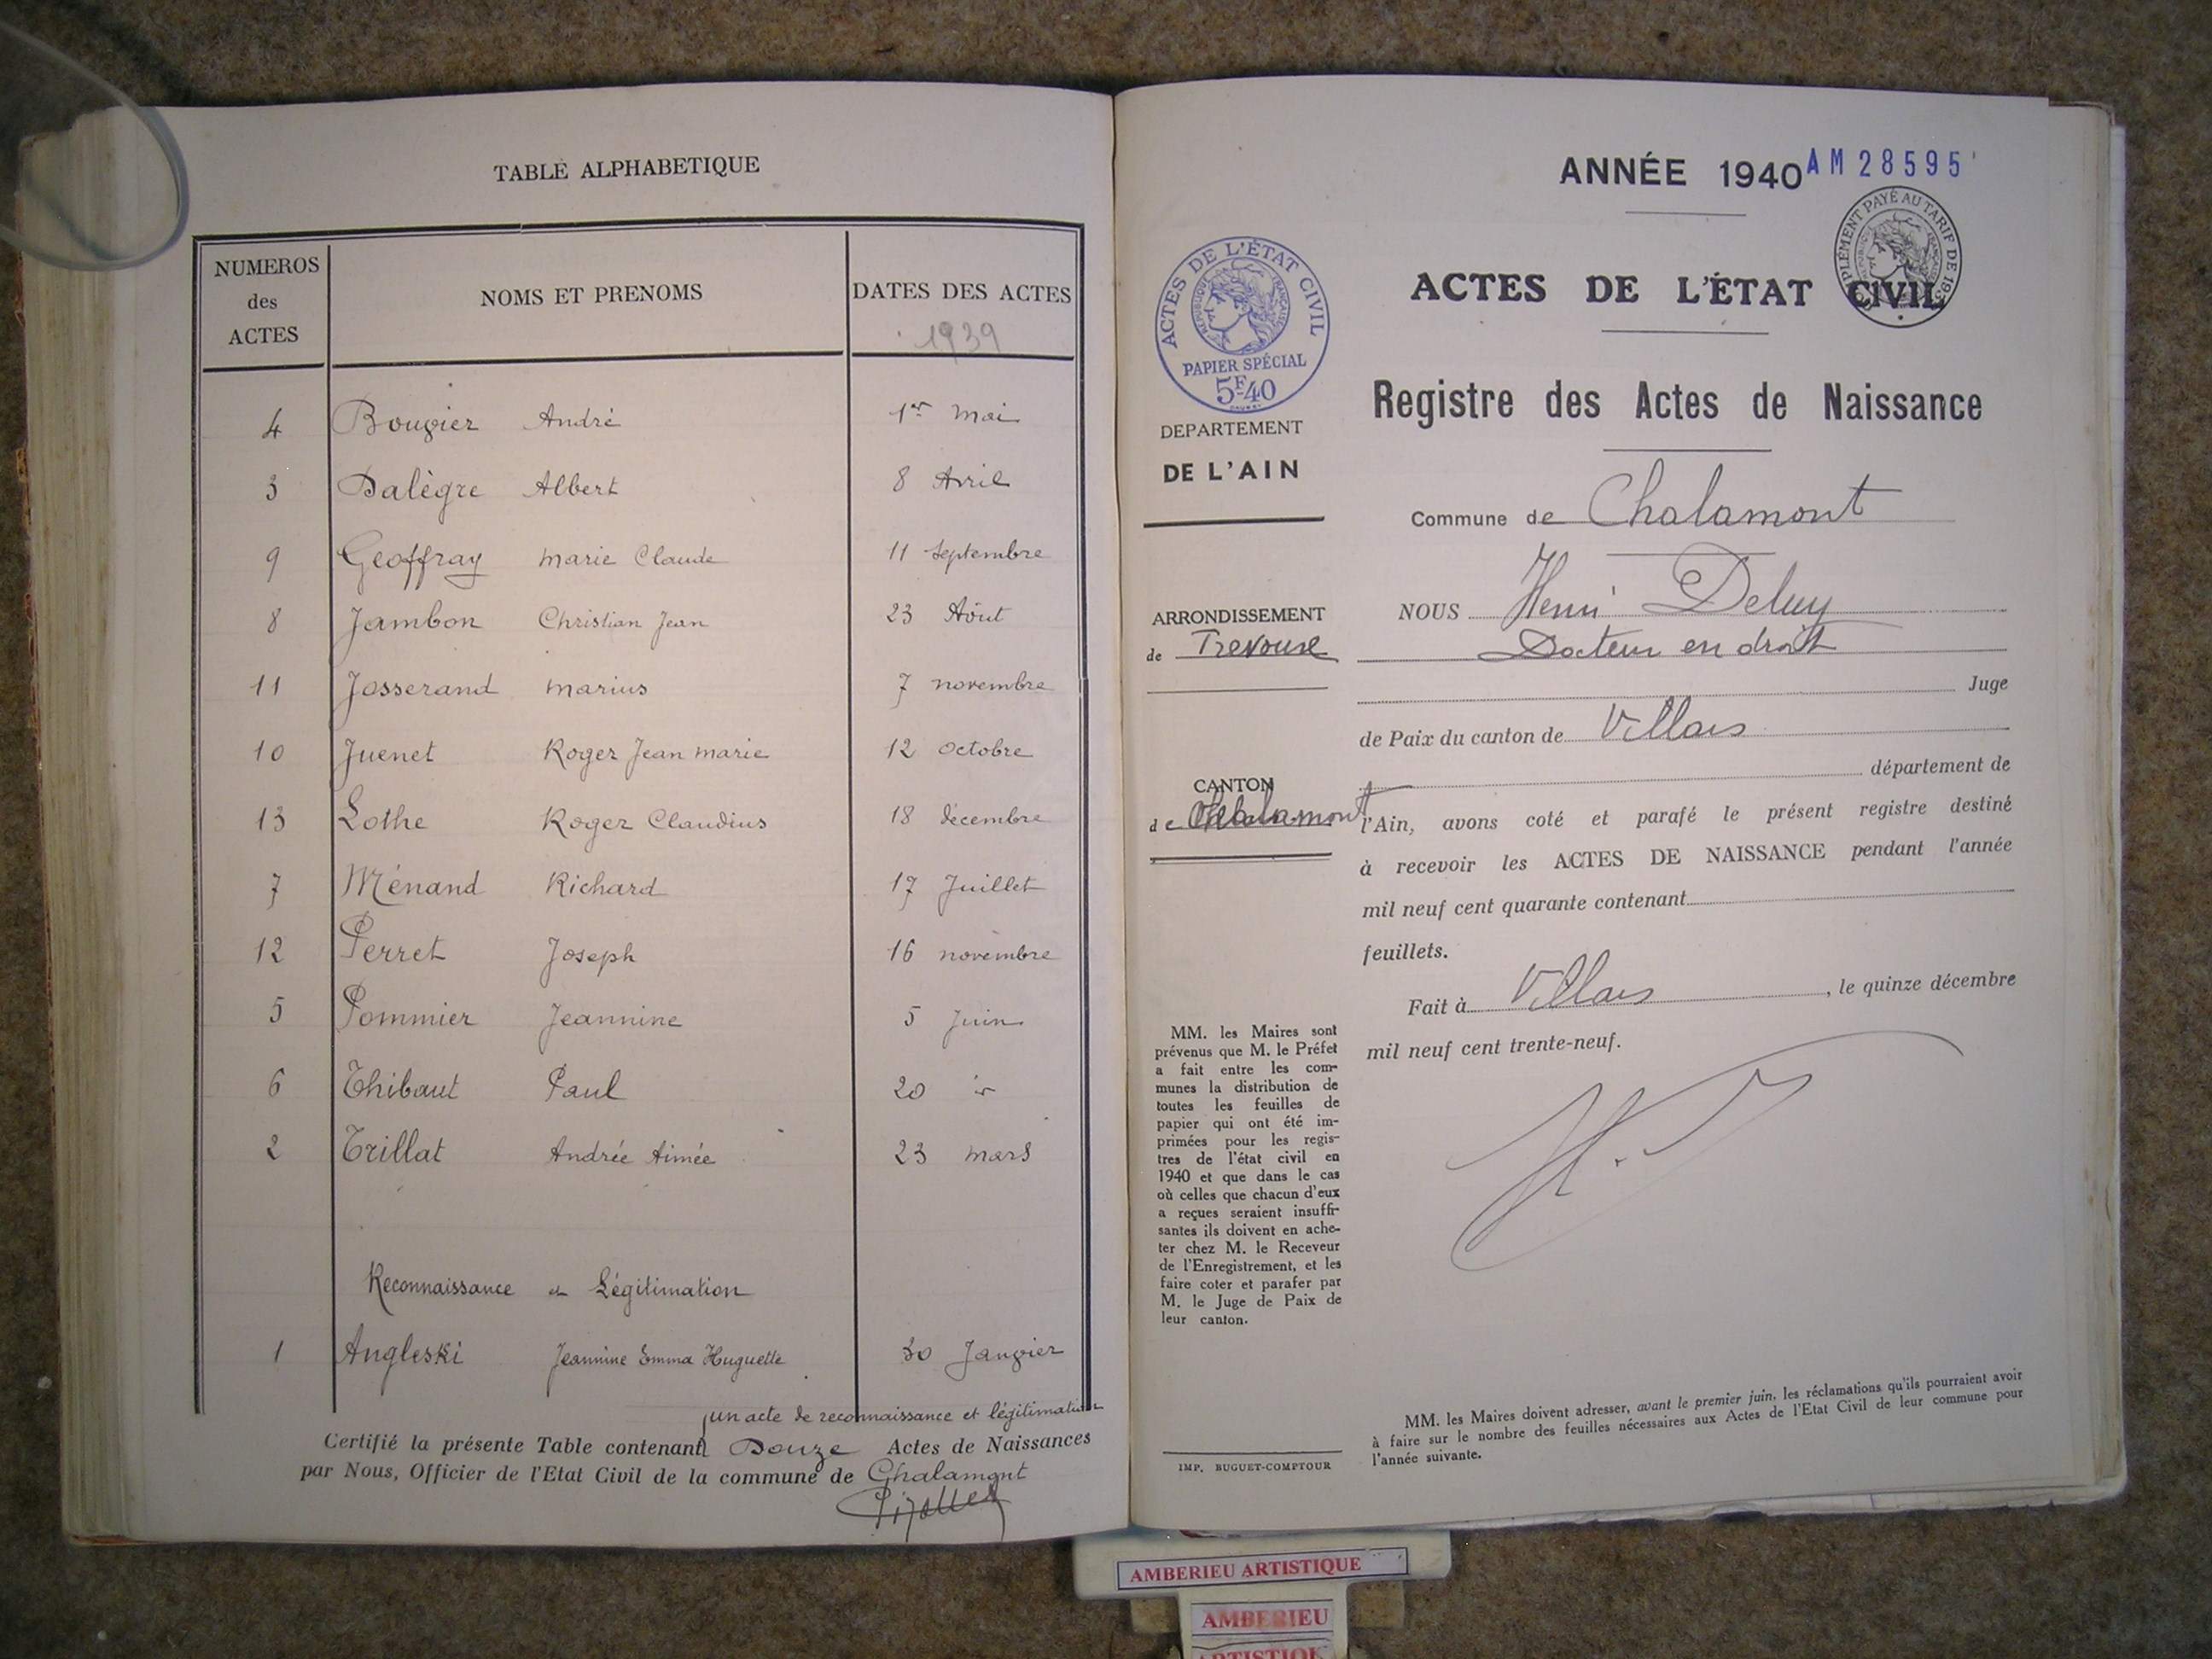 TABLE ALPHABETIQUE
NUMEROS des ACTES NOMS ET PRENOMS DATES DES ACTES
1939
4 Bouvier André 1er Mai
3 Dalègre Albert 8 Avril
9 Geoffray Marie Claude 11 Septembre
8 Jambon Christian Jean 23 Aôut
11 Josserand Marius 7 novembre
10 Juenet Roger Jean Marie 12 Octobre
13 Lothe Roger Claudius 18 décembre
7 Ménand Richard 17 Juillet
12 Perret Joseph 16 novembre
5 Pommier Jeannine 5 Juin
6 Thibaut Paul 20
2 Trillat Andrée Aimée 23 mars
Reconnaissance et Légitimation
1 Angleski Jeannine Emma Huguette 30 Janvier
un acte de reconnaissance et légitimation
Certifié la présente Table contenant Douze Actes de Naissances
par Nous, Officier de l'Etat Civil de la commune de Chalamont
ANNÉE 1940 AM 28595
SUPPLÉMENT PAYÉ AU TARIF DE 193
ACTES DE L'ÉTAT CIVIL
Registre des Actes de Naissance
Commune de Chalamont
NOUS Henri Deluy
Docteur en droit
Juge
de Paix du canton de Villars
département de
l'Ain, avons coté et parafé le présent registre destiné
à recevoir les ACTES DE NAISSANCE pendant l'année
mil neuf cent quarante contenant
feuillets.
Fait à Villars, le quinze décembre
mil neuf cent trente-neuf.
MM. les Maires doivent adresser, avant le premier juin, les réclamations qu'ils pourraient avoir
à faire sur le nombre des feuilles nécessaires aux Actes de l'Etat Civil de leur commune pour
l'année suivante.
ACTES DE L'ÉTAT CIVIL
RÉPUBLIQUE FRANÇAISE
PAPIER SPÉCIAL
5F40
DEPARTEMENT
DE L'AIN
ARRONDISSEMENT
de Trevoux
CANTON
de Chalamont
MM. les Maires sont
prévenus que M. le Préfet
a fait entre les com-
munes la distribution de
toutes les feuilles de
papier qui ont été im-
primées pour les regis-
tres de l'état civil en
1940 et que dans le cas
où celles que chacun d'eux
a reçues seraient insuffi-
santes ils doivent en ache-
ter chez M. le Receveur
de l'Enregistrement, et les
faire coter et parafer par
M. le Juge de Paix de
leur canton.
IMP. BUGUET-COMPTOUR
AMBERIEU ARTISTIQUE
AMBERIEU
ARTISTIQUE